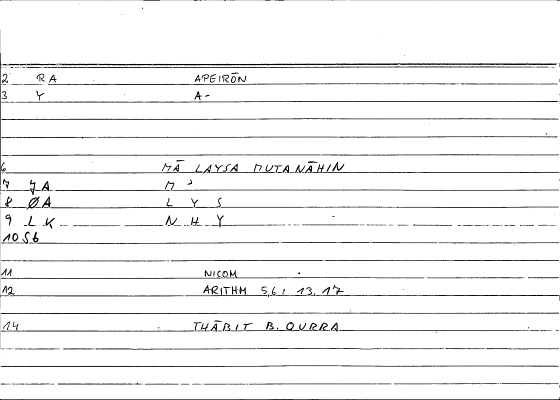 2 RA APEIRŌN
3 Y A-
6 MĀ LAYSA MUTANĀHIN
7 JA M ʾ
8 ØA L Y S
9 LK N H Y
10 56
11 NICOM
12 ARITHM 5,6 : 13.17
14 THĀBIT B. QURRA